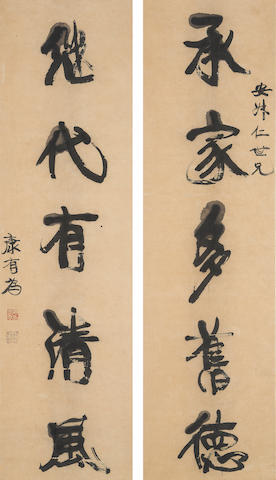 承家多舊德
安姊仁世兄
继代有清風
康有為